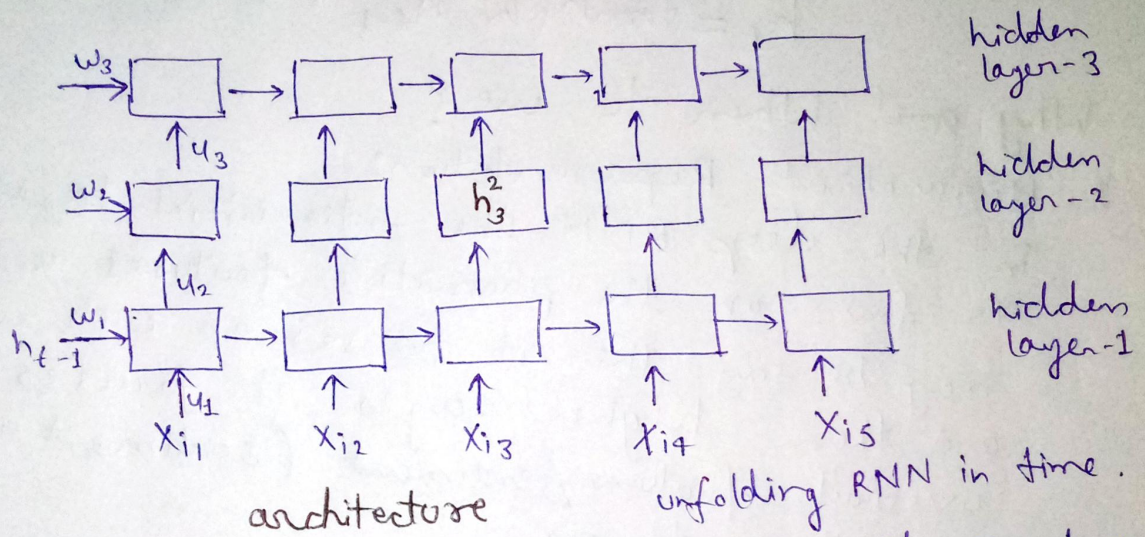 hidden
layer-3
w₃
u₃
hidden
layer-2
w₂
h₃²
u₂
hidden
layer-1
w₁
hₜ₋₁
u₁
Xᵢ₁ Xᵢ₂ Xᵢ₃ Xᵢ₄ Xᵢ₅
architecture
unfolding RNN in time.